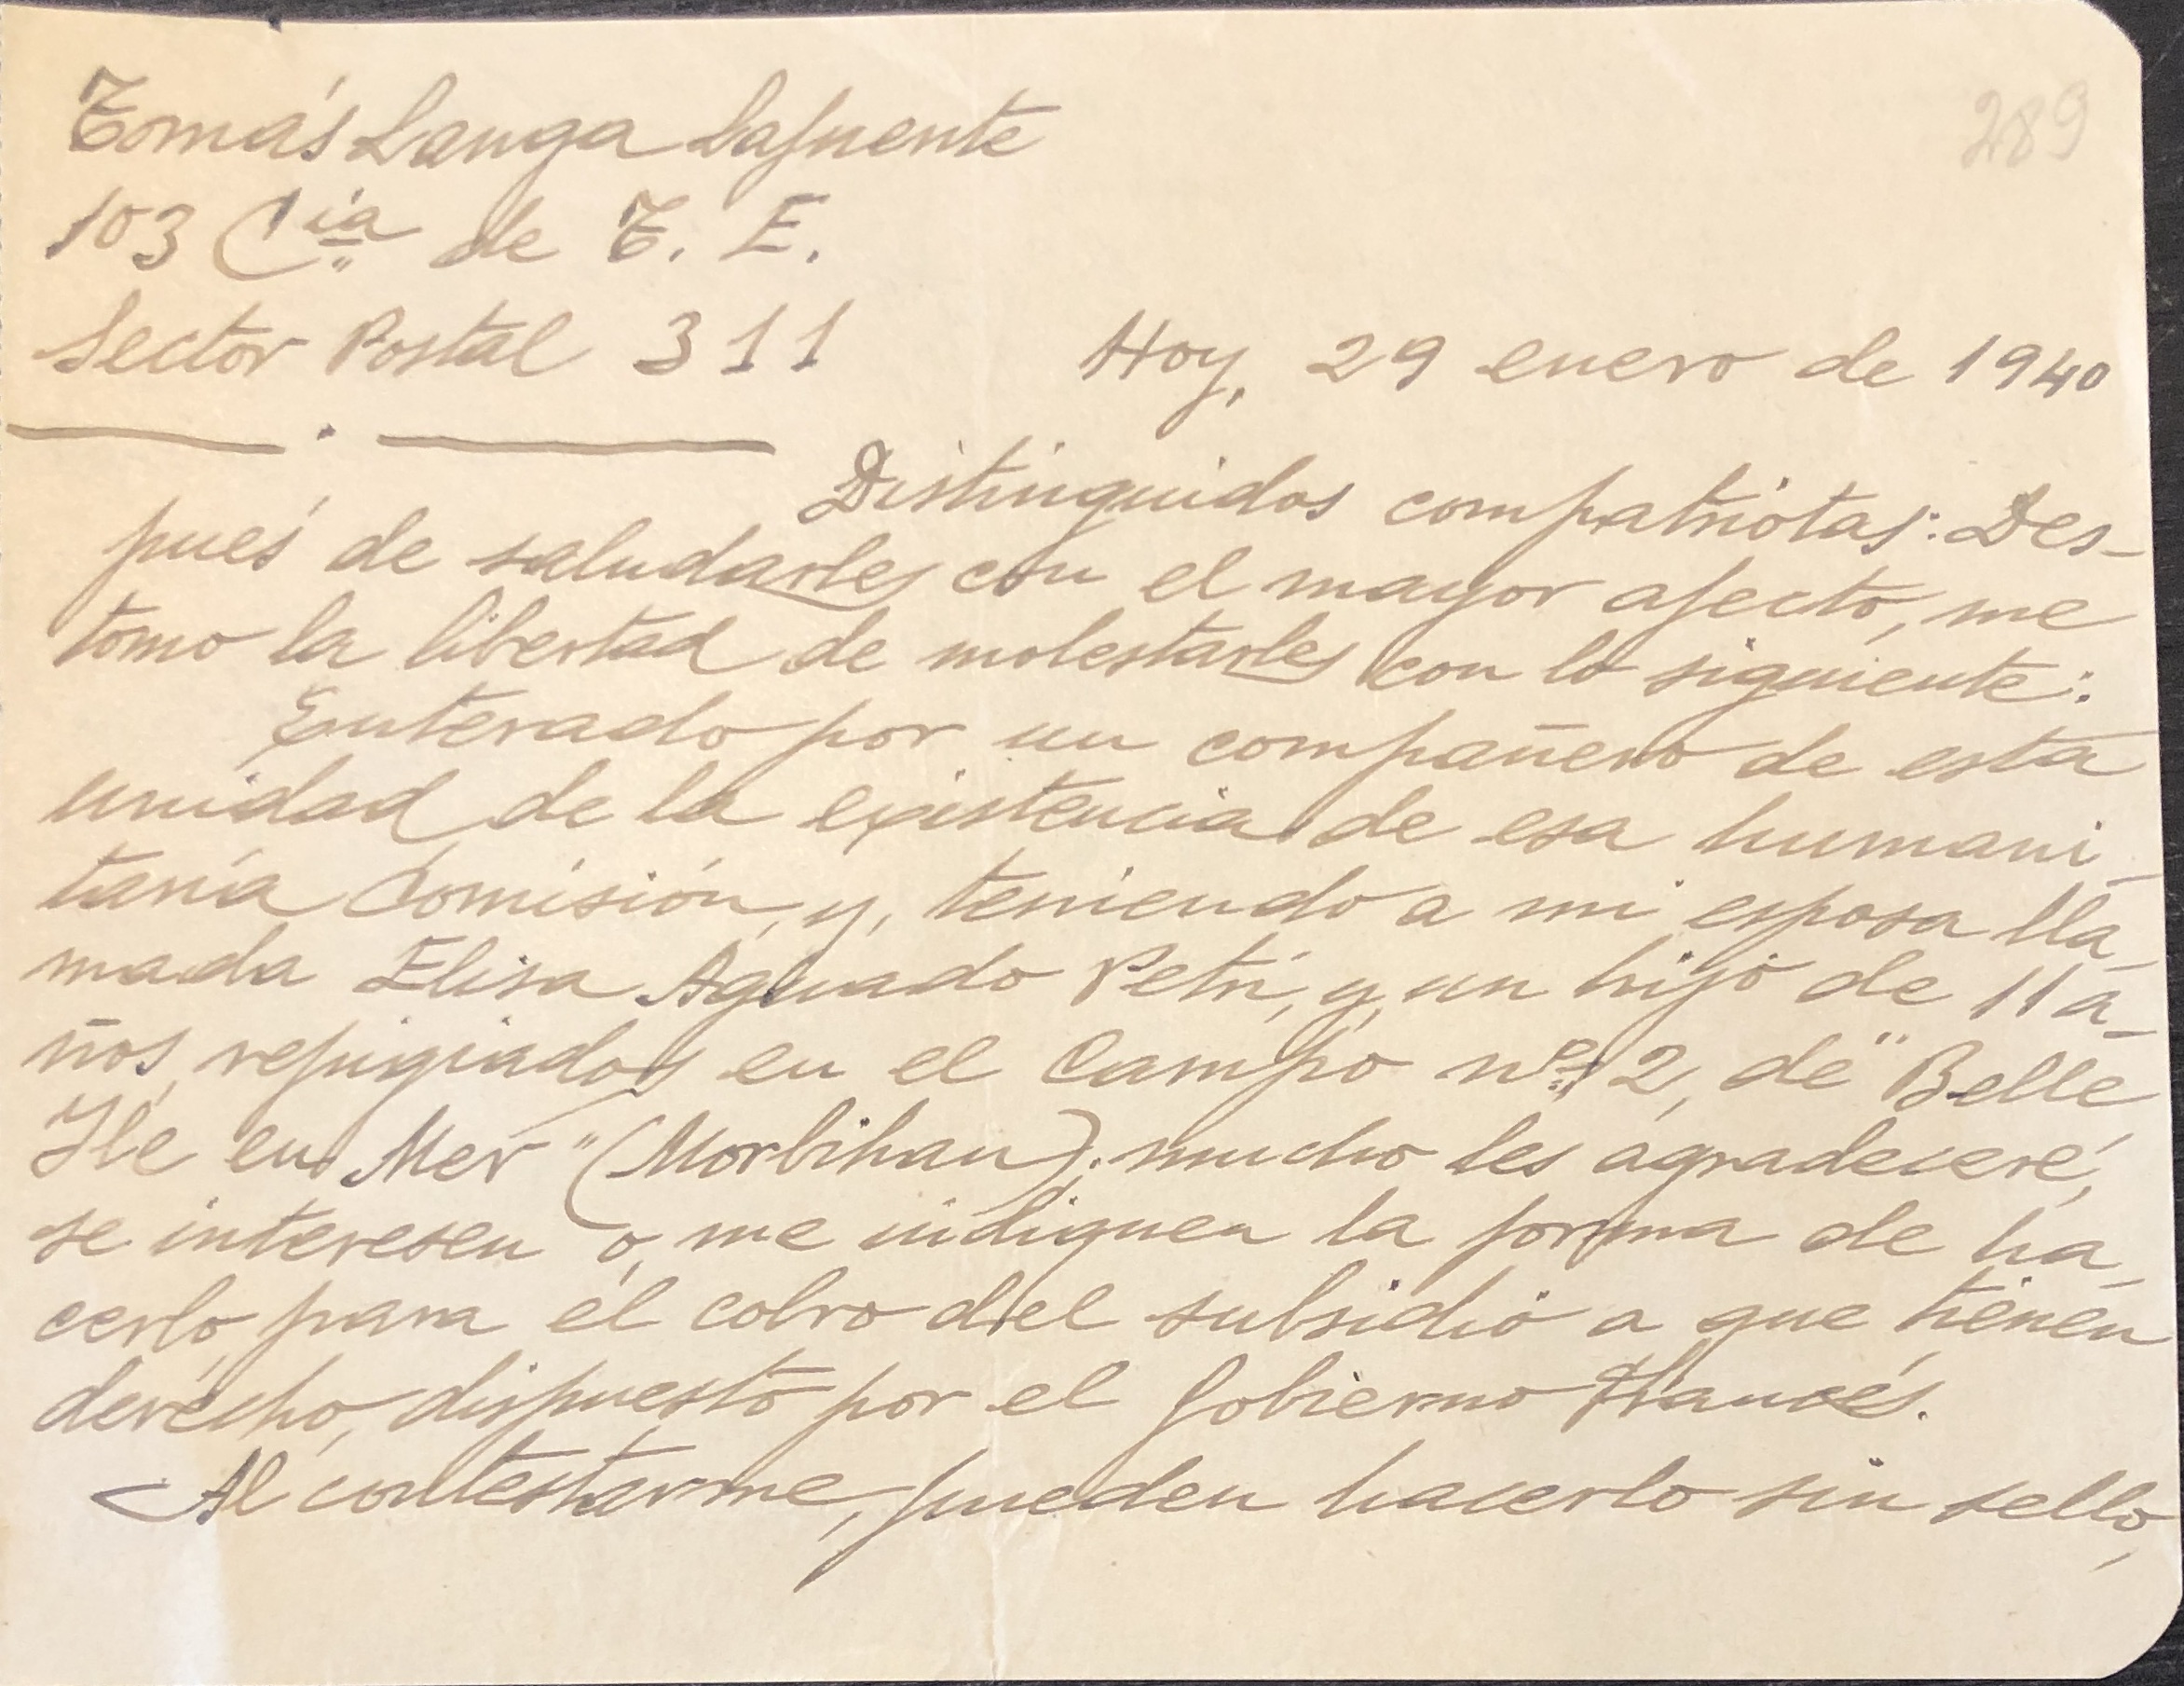 289
Tomás Langa Lafuente
103 Cía de T. E.
Sector Postal 311
Hoy, 29 enero de 1940
Distinguidos compatriotas: Des-
pués de saludarles con el mayor afecto, me
tomo la libertad de molestarles con lo siguiente:
Enterado por un compañero de esta
unidad de la existencia de esa humani-
taria Comisión, y, teniendo a mi esposa lla-
mada Elisa Aguado Petri, y, un hijo de 11 a-
ños, refugiados en el Campo nº 2, de "Belle
Ile en Mer" (Morbihan); mucho les agradeceré,
se interesen ó, me indiquen la forma de ha-
cerlo, para el cobro del subsidio a que tienen
derecho, dispuesto por el Gobierno Francés.
Al contestarme, pueden hacerlo sin sello,